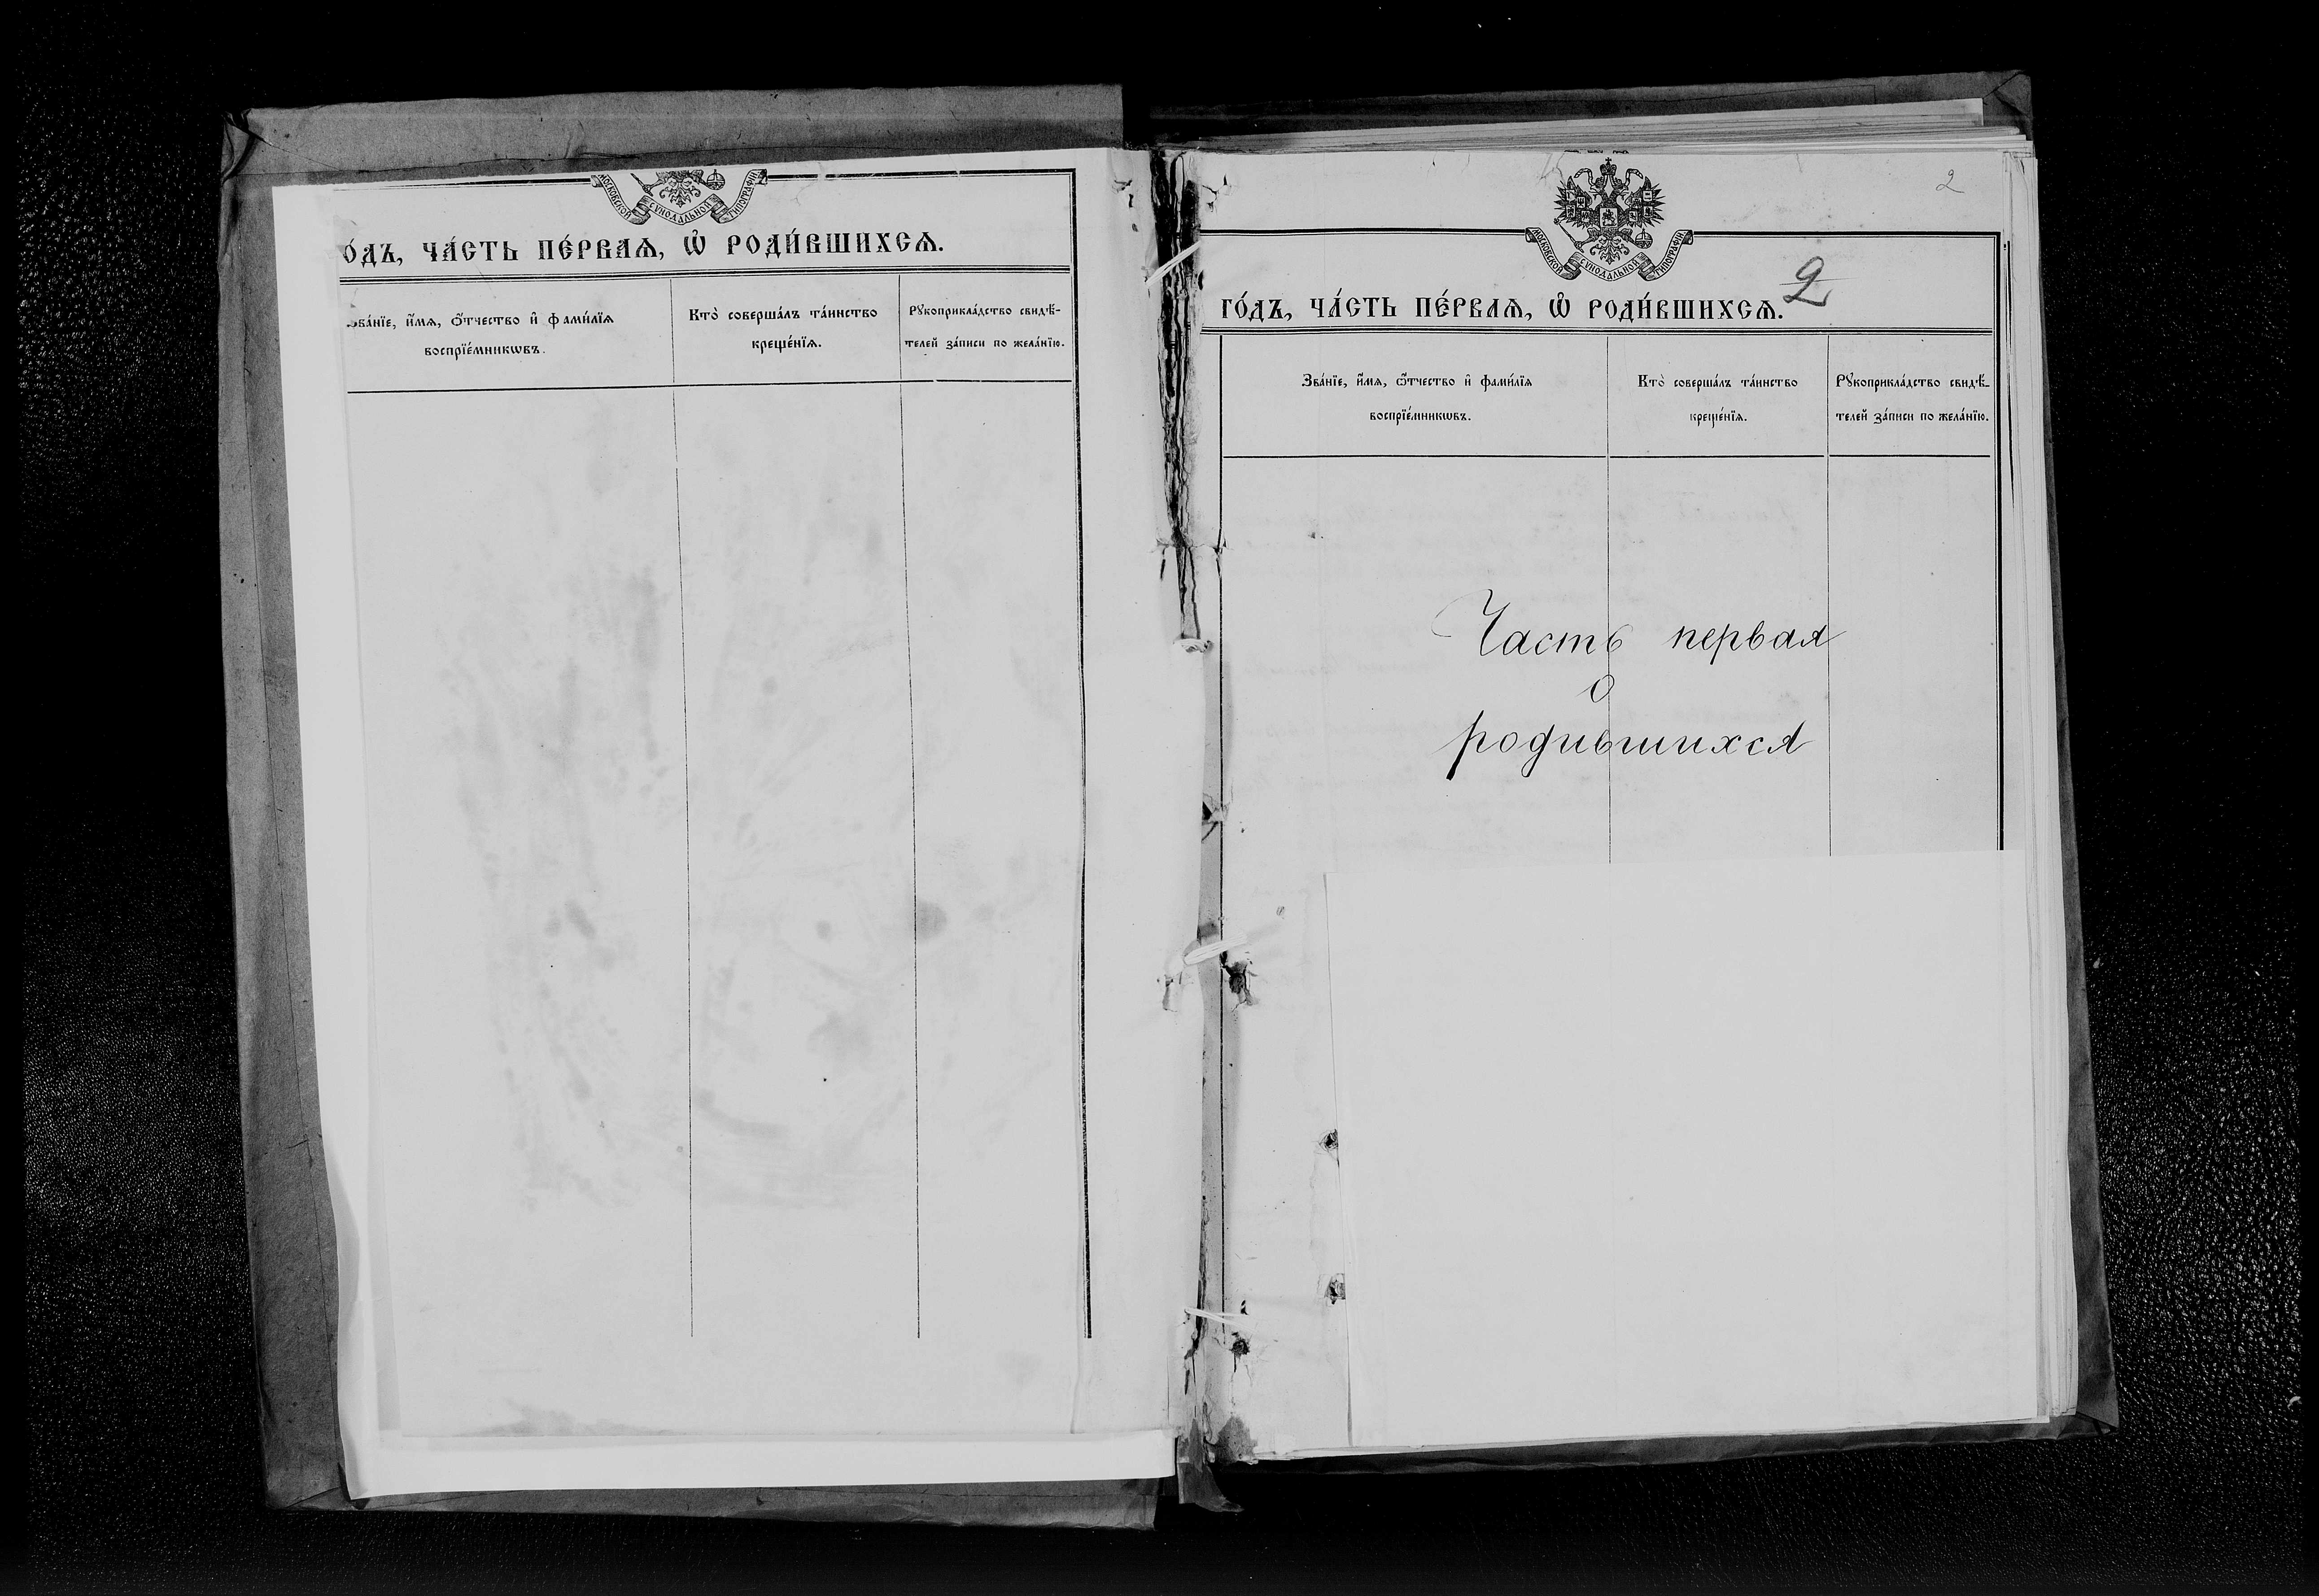 МОСКОВСКОЙ СѴНОДАЛЬНОЙ ТИПОГРАФІИ
о́дъ, ча́сть пе́рваѧ, ѡ҆ роди́вшихсѧ.
Зва́нїе, и҆́мѧ, ѻ҆́тчество и҆ фами́лїѧ
воспрїе́мникѡвъ.
Кто̀ соверша́лъ та́инство
креще́нїѧ.
Рꙋкоприкла́дство свидѣ́-
телей за́писи по жела́нїю.
2
МОСКОВСКОЙ СѴНОДАЛЬНОЙ ТИПОГРАФІИ
2
го́дъ, ча́сть пе́рваѧ, ѡ҆ роди́вшихсѧ.
Зва́нїе, и҆́мѧ, ѻ҆́тчество и҆ фами́лїѧ
воспрїе́мникѡвъ.
Кто̀ соверша́лъ та́инство
креще́нїѧ.
Рꙋкоприкла́дство свидѣ́-
телей за́писи по жела́нїю.
Часть первая
о
родившихся